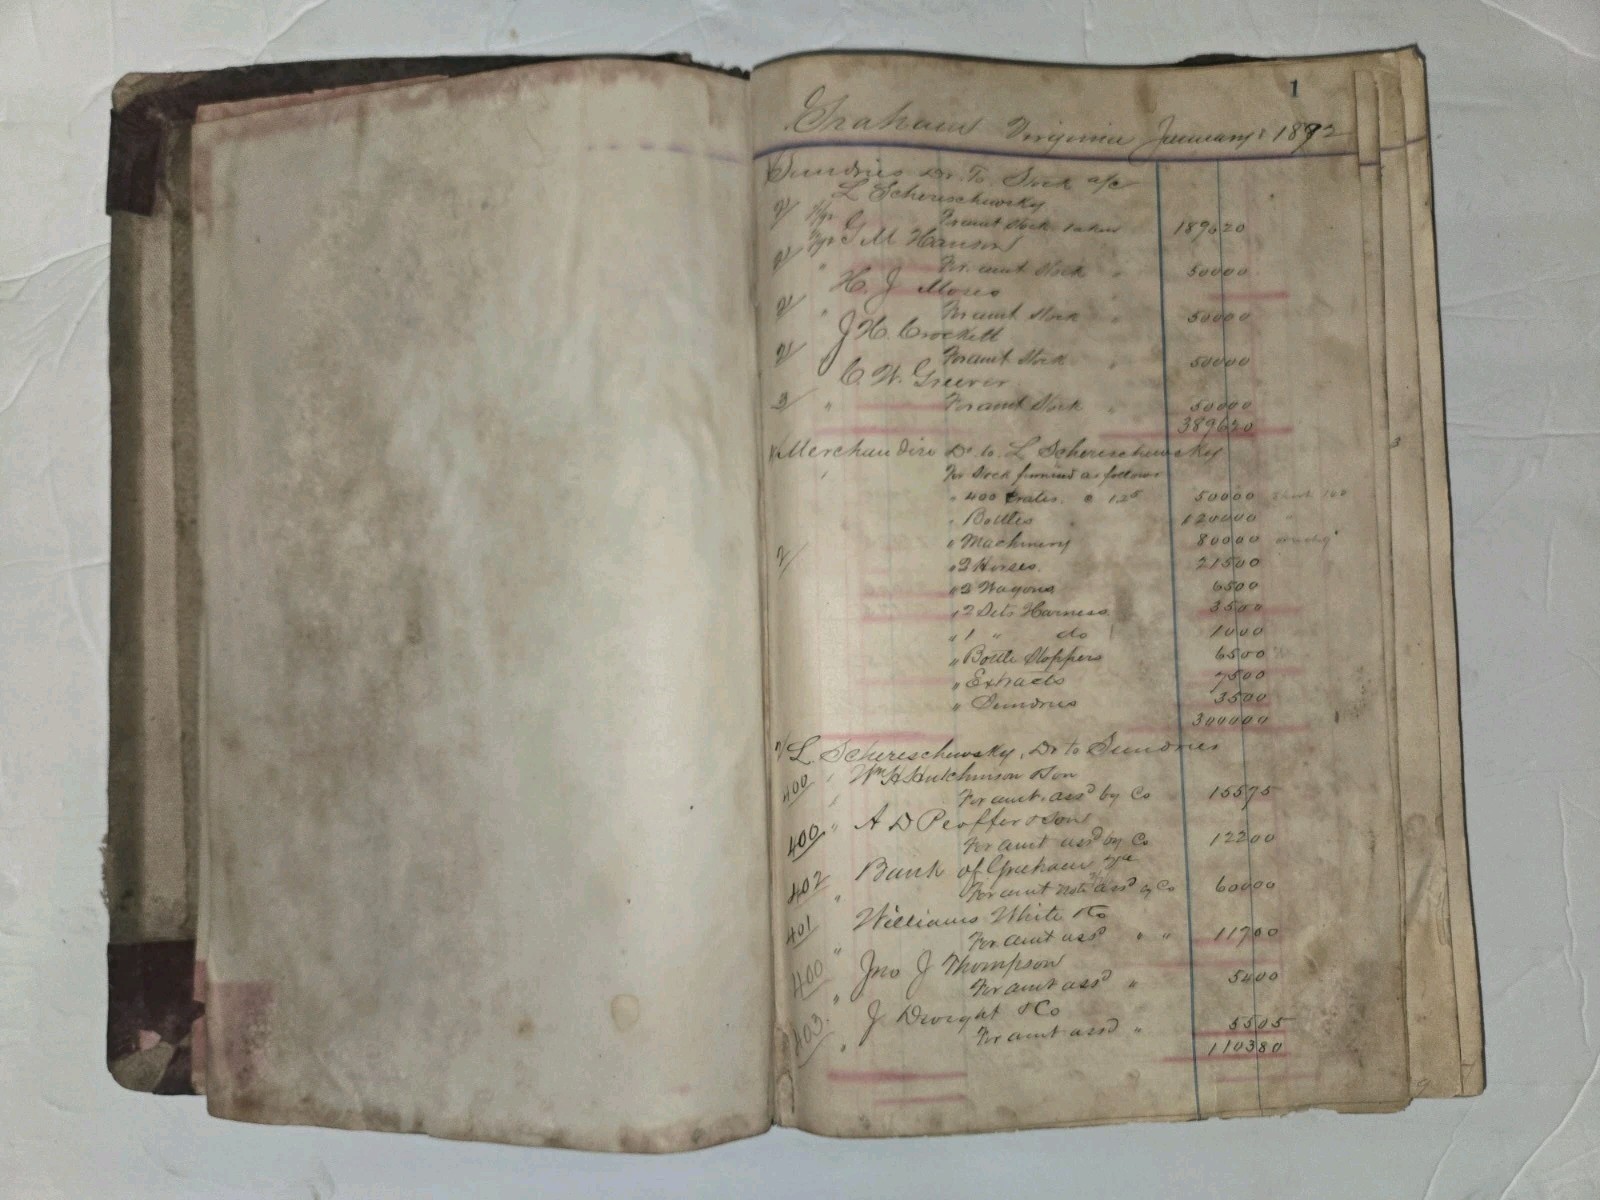 1
Graham Virginia January 1892
Sundries Dr. To Stock a/c
L Schereschewsky
2/ For amt Stock taken 189620
G M Hanson
2/ " For amt Stock " 50000
H. J Mores
2/ " For amt Stock " 50000
J H. Crockett
2/ For amt Stock " 50000
C. W. Greever
3/ " For amt Stock " 50000
389620
Merchandise Dr to L Schereschewsky
For Stock furnised as follows
" 400 Crates @ 125 50000
" Bottles 120000
" Machinery 80000
2/ " 2 Horses. 21500
" 2 Wagons 6500
" 2 Sets Harness 3500
" 1 " do 1000
" Bottle Stoppers 6500
" Extracts 7500
" Sundries 3500
300000
L. Schereschewsky, Dr to Sundries
400 " Wm H Hutchinson & Son
For amt. assd by Co 15575
400 " A D Peoffer & Son
For amt assd by Co 12200
402 Bank of Graham Va
" For amt note assd by Co 60000
401 Williams White & Co
" For amt assd " " 11700
400 Jno J Thompson
" For amt assd " 5400
403. J Dwight & Co
" For amt assd " 5505
110380